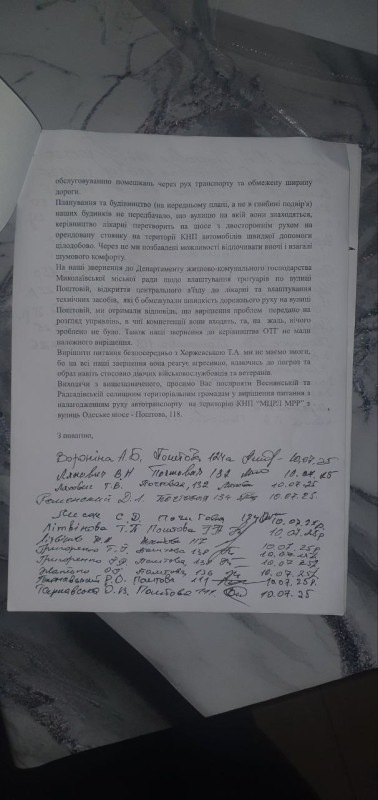 обслуговуванни помешкань через рух транспорту та обмежену ширину
дороги.
Планування та будівництво (на передньому плані, а не в глибині подвір'я)
наших будинків не передбачало, що вулицю на якій вони знаходяться,
керівництво лікарні перетворить на шосе з двостороннім рухом на
орендовану стоянку на території КНП автомобілів швидкої допомоги
цілодобово. Через це ми позбавлені можливості відпочивати вночі і взагалі
шумового комфорту.
На наші звернення до Департаменту житлово-комунального господарства
Миколаївської міської ради щодо влаштування тротуарів по вулиці
Поштовій, відкриття центрального в'їзду до лікарні та влаштування
технічних засобів, які б обмежували швидкість дорожнього руху на вулиці
Поштовій, ми отримали відповідь, що вирішення проблем передано на
розгляд управлінь, в чиї компетенції вони входять, та, на жаль, нічого
зроблено не було. Також наші звернення до керівництва ОТГ не мали
належного вирішення.
Вирішити питання безпосередньо з Хержевською Т.А. ми не маємо змоги,
бо на всі наші звернення вона реагує агресивно, вдаючись до погроз та
образ навіть стосовно діючих військовослужбовців та ветеранів.
Виходячи з вищезазначеного, просимо Вас посприяти Веснянській та
Радсадівській селищним територіальним громадам у вирішенні питання з
налагодженням руху автотранспорту на територію КНП "МЦРЛ МРР" з
вулиць Одеське шосе - Поштова, 118.
З повагою,
Вороніна А.В, Поштова 124а 10.07.25
Лякович В.Н Почтовая 132 10.07.25
Лякович Т.В. Почтовая, 132 10.07.25
Д.Л. Почтовая 134 10.07.25
С.Д. Почтовая 10.07.25р.
Літвінова Т.П Поштова 10.07.25р.
Поштова 117 10.07.25р.
Григоренко Т.Г. Поштова 138 10.07.25р.
Григоренко Поштова 138 10.07.25р.
О.Г. Поштова 136 10.07.25
Р.О. Поштова 111 10.07.25р.
Тарнавська О.В. Поштова 111 10.07.25